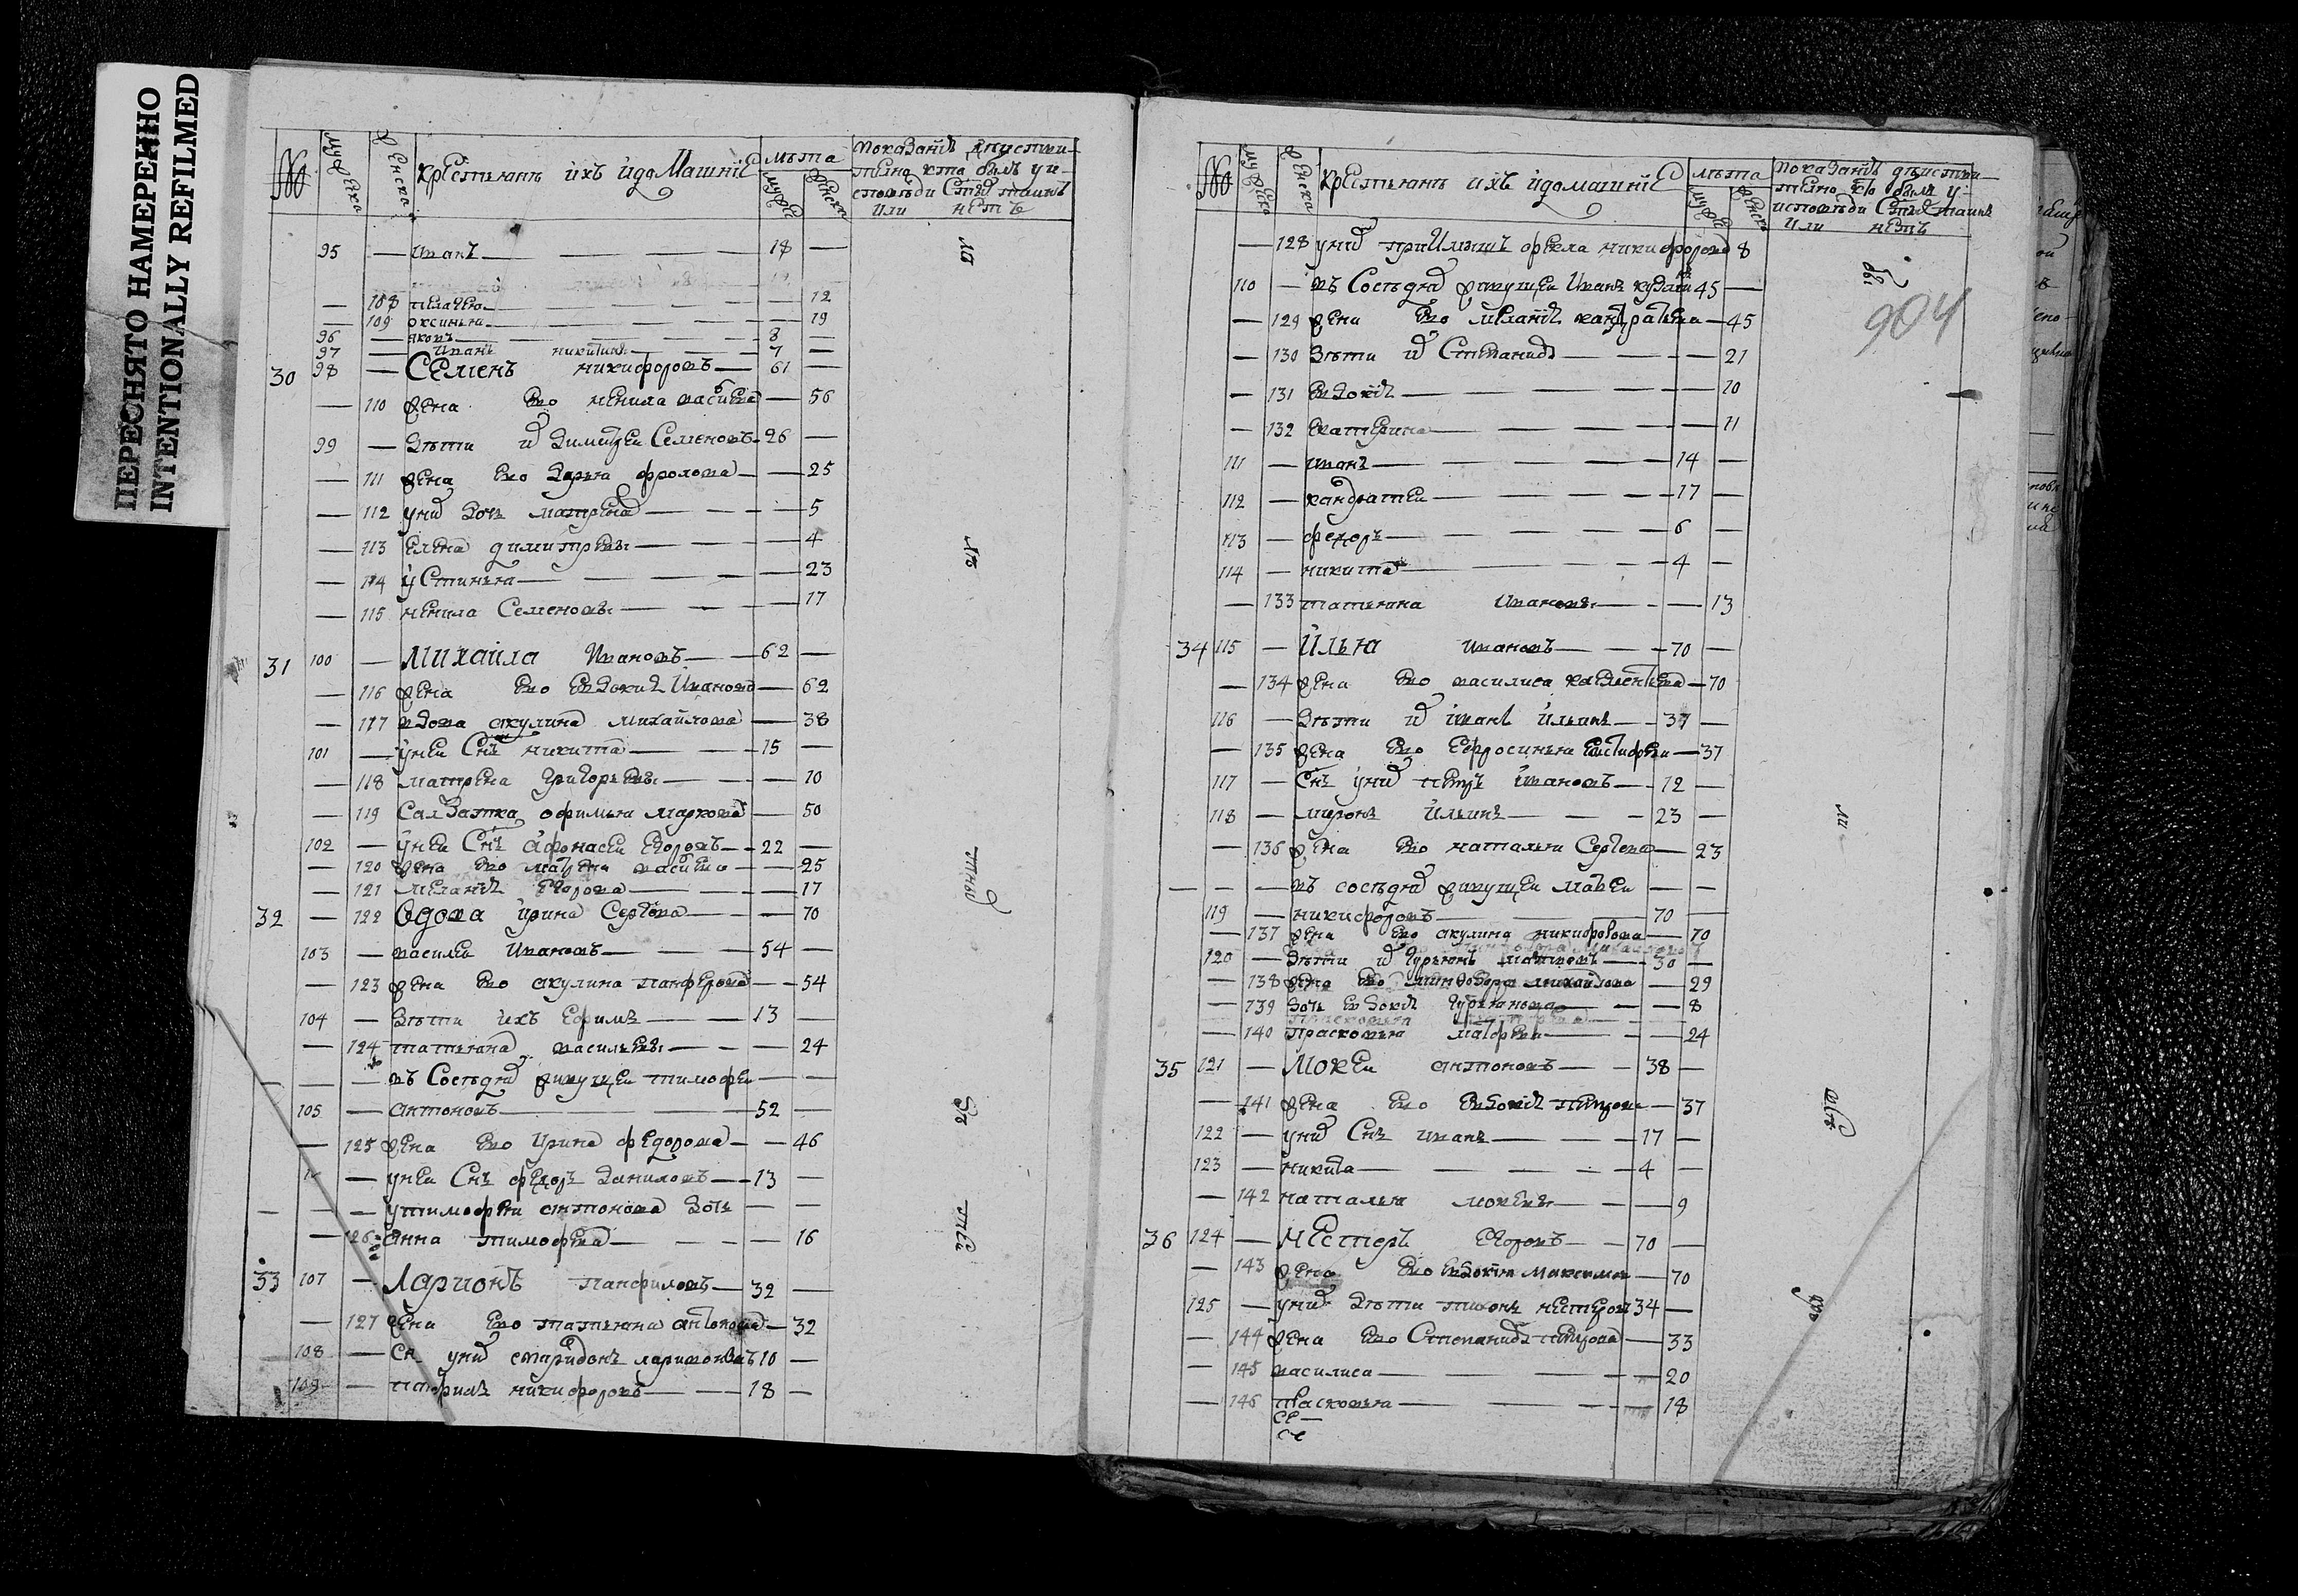 ПЕРЕСНЯТО НАМЕРЕННО
INTENTIONALLY REFILMED
№
мужеска
женска
крестьянъ ихъ и домашние
лѣта
мужес
женска
показание действи
телно кто былъ у и
споведи стыхъ таинъ
или нетъ
95 — иванъ — 18 —
— 108 пелагея — 12
— 109 оксинья — 19
96 — яковъ — 8 —
97 — иванъ никитины — 7 —
30 98 — Семенъ никифоровъ — 61 —
— 110 жена ево ненила васильева — 56
99 — дети ихъ димитреи Семеновъ — 26 —
— 111 жена ево дарья фролова — 25
— 112 унихъ дочь матрена — 5
— 113 елена димитревы — 4
— 114 устинья — 23
— 115 ненила Семеновы — 17
31 100 — Михаила Ивановъ — 62 —
— 116 жена ево евдокия Иванова — 62
— 117 вдова акулина михайлова — 38
101 — унеи снъ никита — 15 —
— 118 матрена григорьевы — 10
— 119 Салдатка офимья маркова — 50
102 — унеи Снъ афонасеи егоровъ — 22 —
— 120 жена ево матрена васильева — 25
— 121 мелания егорова — 17
32 — 122 вдова ирина Сергеева — 70
103 — василеи Ивановъ — 54 —
— 123 жена ево акулина панферова — 54
104 — дети ихъ ефимъ — 13 —
— 124 татьяна васильевы — 24
— — — въ Соседяхъ живущеи тимофеи — —
105 — антоновъ — 52 —
— 125 жена ево Ирина федорова — 46
— унеи Снъ федоръ даниловъ — 13 —
— — — утимофея антонова дочь — —
— 126 анна тимофева — 16
33 107 — Ларионъ панфиловъ — 32 —
— 127 жена ево татьяна антонова — 32
108 — Сн унихъ спиридонъ ларионовъ 10 —
109 — никифоровъ — 18 —
№
мужеска
женска
крестьянъ ихъ и домашние
лѣта
мужес
женска
показание действи
телно кто былъ у
исповеди Стыхъ таинъ
или нетъ
904
— 128 унихъ приимышъ фекла никифорова 8
110 — въ Соседяхъ живущеи Иванъ 45 —
— 129 жена ево мелания кандратьева — 45
— 130 дети ихъ Степанида — 21
— 131 евдокия — 20
— 132 екатерина — 11
111 — иванъ — 14 —
112 — кандратеи — 17 —
113 — федоръ — 6 —
114 — никита — 4 —
— 133 татьяна Ивановы — 13
34 115 — Илья ивановъ — 70 —
— 134 жена ево василиса — 70
116 — дети ихъ иванъ ильинъ — 37 —
— 135 жена ево ефросинья — 37
117 — Снъ унихъ петръ ивановъ — 12 —
118 — миронъ ильинъ — 23 —
— 136 жена ево наталья Сергеева — 23
— — — въ соседяхъ живущеи матвеи — —
119 — никифоровъ — 70 —
— 137 жена ево акулина никифорова — 70
120 — дети ихъ гурьянъ матвеевъ — 30 —
— 138 жена ево михайлова — 29
— 139 дочь евдокия гурьянова — 8
— 140 прасковья матфеева — 24
35 121 — Мокеи антоновъ — 38 —
— 141 жена ево евдокия петрова — 37
122 — унихъ Снъ иванъ — 17 —
123 — никита — 4 —
— 142 наталья мокеевы — 9
36 124 — Нестеръ егоровъ — 70 —
— 143 жена ево евдокия максимова — 70
125 — унихъ дети тихонъ нестеровъ 34 —
— 144 жена ево Степанида петрова — 33
— 145 василиса — 20
— 146 прасковья — 18